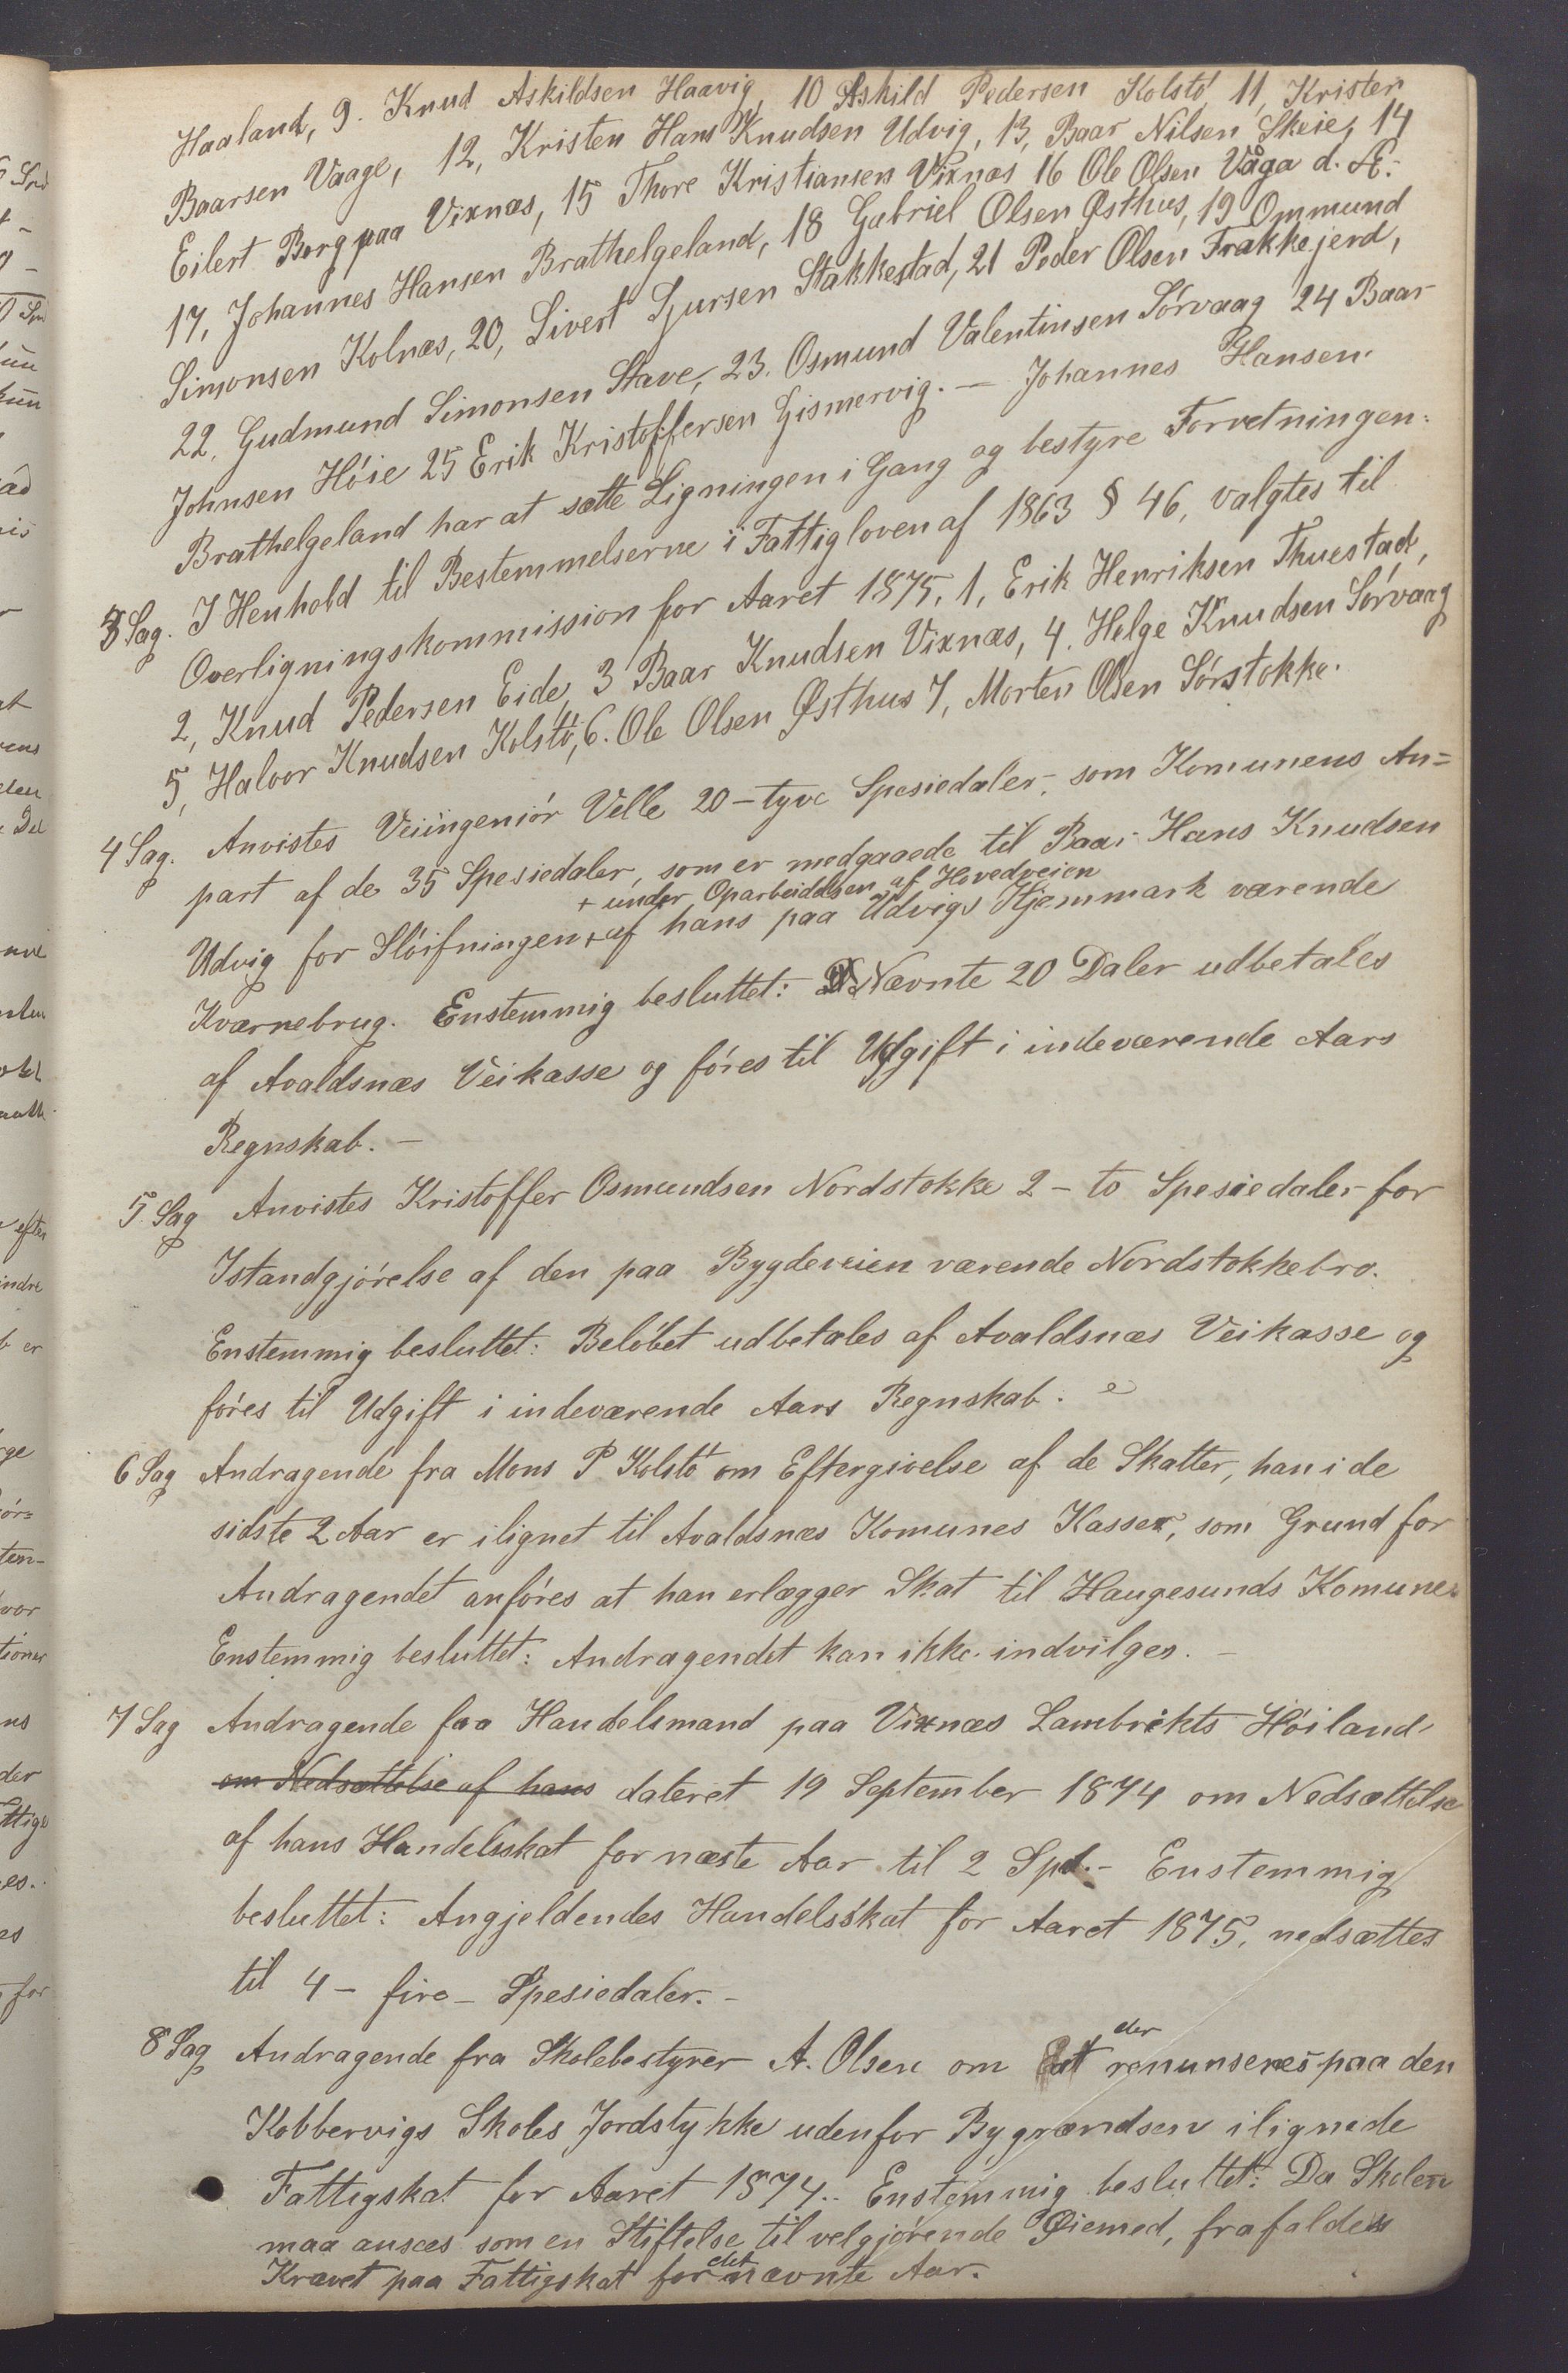 Haaland, 9. Knud Askildsen Haavig, 10 Askild Pedersen Kolstö 11, Kristen
Baarsen Vaage, 12, Kristen Hans Knudsen Udvig, 13, Baar Nilsen Skeie, 14
Eilert Borg paa Vixnæs, 15 Thore Kristiansen Vixnæs 16 Ole Olsen Våga d. Æ.
17, Johannes Hansen Brathelgeland, 18 Gabriel Olsen Østhus, 19 Ommund
Simonsen Kolnæs, 20, Sivert Sjursen Stakkestad, 21 Peder Olsen Frakkejerd,
22, Gudmund Simonsen Stave, 23. Osmund Valentinsen Sörvaag 24 Baar
Johnsen Höie 25 Erik Kristoffersen Gismervig. — Johannes Hansen
Brathelgeland har at sætte Ligningen i Gang og bestyre Forretningen.
3 Sag. I Henhold til Bestemmelserne i Fattigloven af 1863 § 46, valgtes til
Overligningskommission for Aaret 1875, 1, Erik Henriksen Thuestad,
2, Knud Pedersen Eide, 3 Baar Knudsen Vixnæs, 4. Helge Knudsen Sörvaag
5, Halvor Knudsen Kolstö, 6. Ole Olsen Østhus 7, Morten Olsen Sörstokke.
4 Sag. Anvistes Veiingeniör Velle 20 – tyve Spesiedaler, som Komunens An=
part af de 35 Spesiedaler, som er medgaaede til Baar Hans Knudsen
+ under Oparbeidelsen af Hovedveien
Udvig for Slöifningen + af hans paa Udvigs Hjemmark værende
Kværnebrug. Enstemmig besluttet: Nævnte 20 Daler udbetales
af Avaldsnæs Veikasse og föres til Udgift i indeværende Aars
Regnskab. —
5. Sag Anvistes Kristoffer Osmundsen Nordstokke 2 – to Spesiedaler for
Istandgjörelse af den paa Bygdeveien værende Nordstokkebro.
Enstemmig besluttet: Belöbet udbetales af Avaldsnæs Veikasse og
föres til Udgift i indeværende Aars Regnskab.
6 Sag Andragende fra Mons P Kolstö om Eftergivelse af de Skatter, han i de
sidste 2 Aar er ilignet til Avaldsnæs Komunes Kasser, som Grund for
Andragendet anföres at han erlægger Skat til Haugesunds Komune.
Enstemmig besluttet: Andragendet kan ikke indvilges. —
7 Sag Andragende fra Handelsmand paa Vixnæs Lambrikts Höiland
om Nedsættelse af hans dateret 19 September 1874 om Nedsættelse
af hans Handelsskat for næste Aar til 2 Spd. – Enstemmig
besluttet: Angjeldendes Handelsskat for Aaret 1875, nedsættes
til 4 – fire – Spesiedaler. –
der
8 Sag Andragende fra Skolebestyrer A. Olsen om at renunseres paa den
Kobbervigs Skoles Jordstykke udenfor Bygrændsen ilignede
Fattigskat for Aaret 1874. Enstemmig besluttet: Da Skolen
maa ansees som en Stiftelse til velgjörende Øiemed, frafaldes
det
Kravet paa Fattigskat for nævnte Aar.